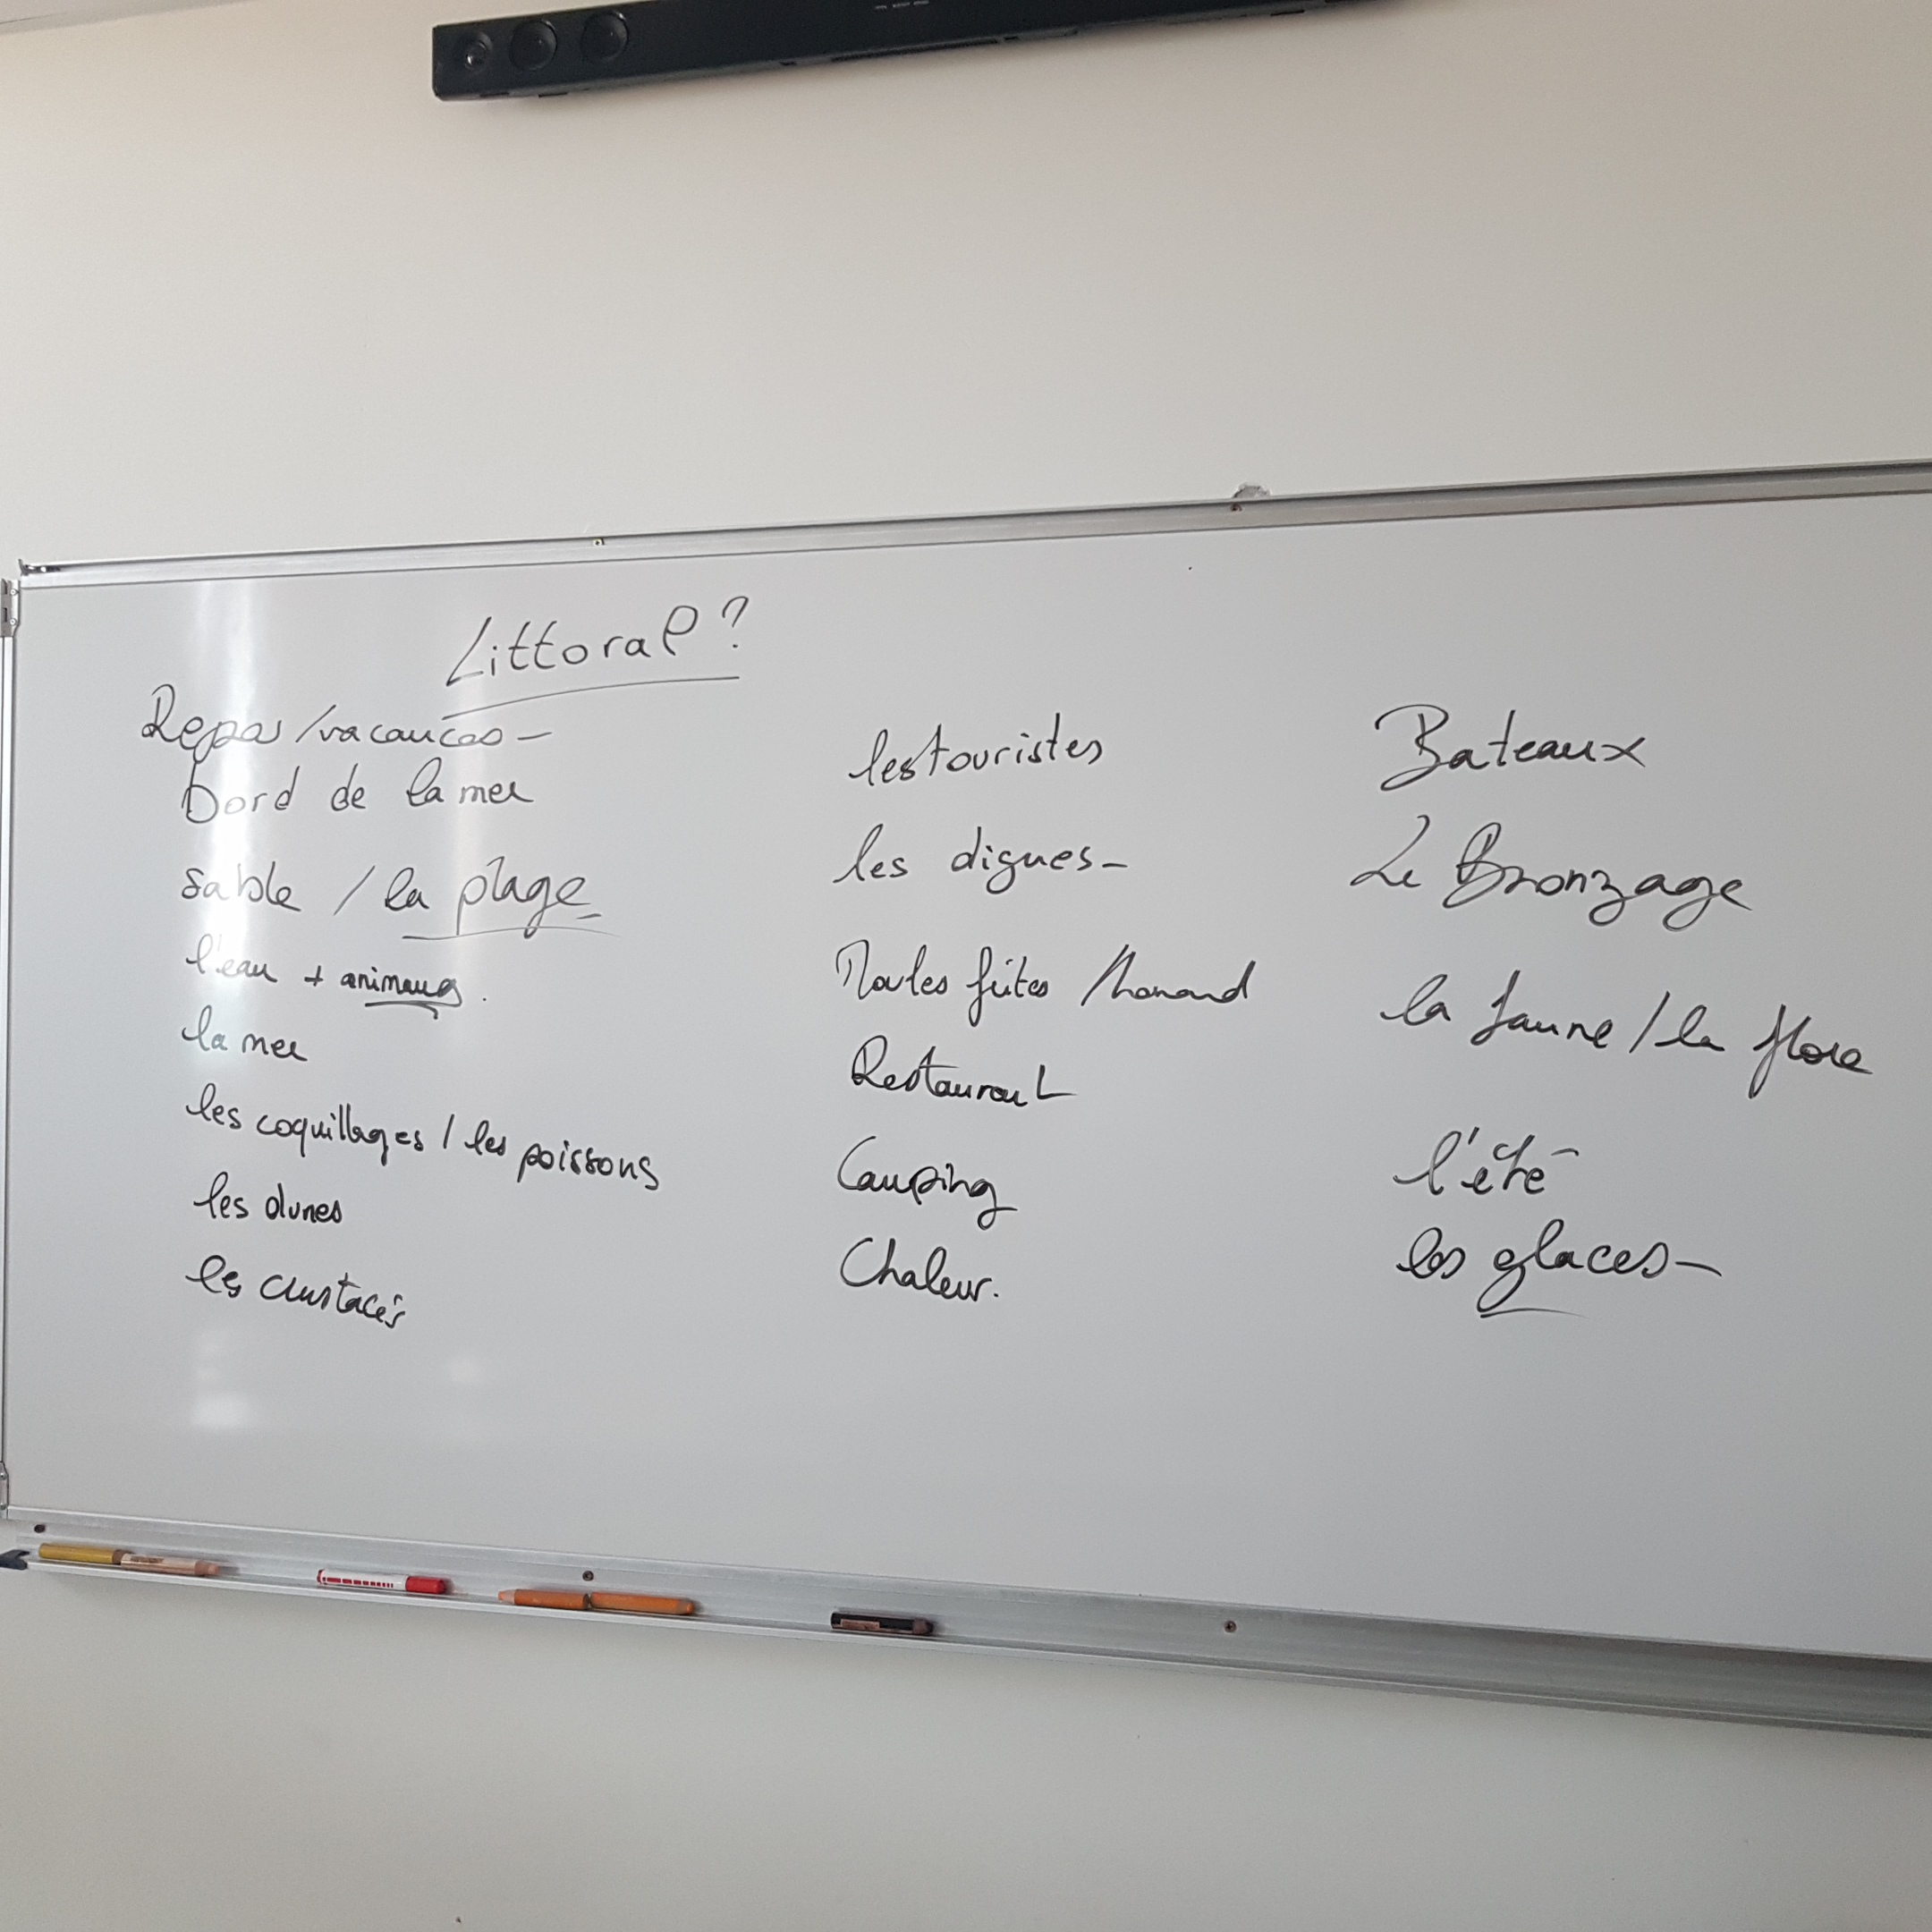 Littoral ?
Repas / vacances -
bord de la mer
sable / la plage
l'eau + animaux.
la mer
les coquillages / les poissons
les dunes
les crustacés
les touristes
les digues -
Moules frites / homard
Restaurant
Camping
Chaleur.
Bateaux
Le Bronzage
la faune / la flore
l'été
les glaces -